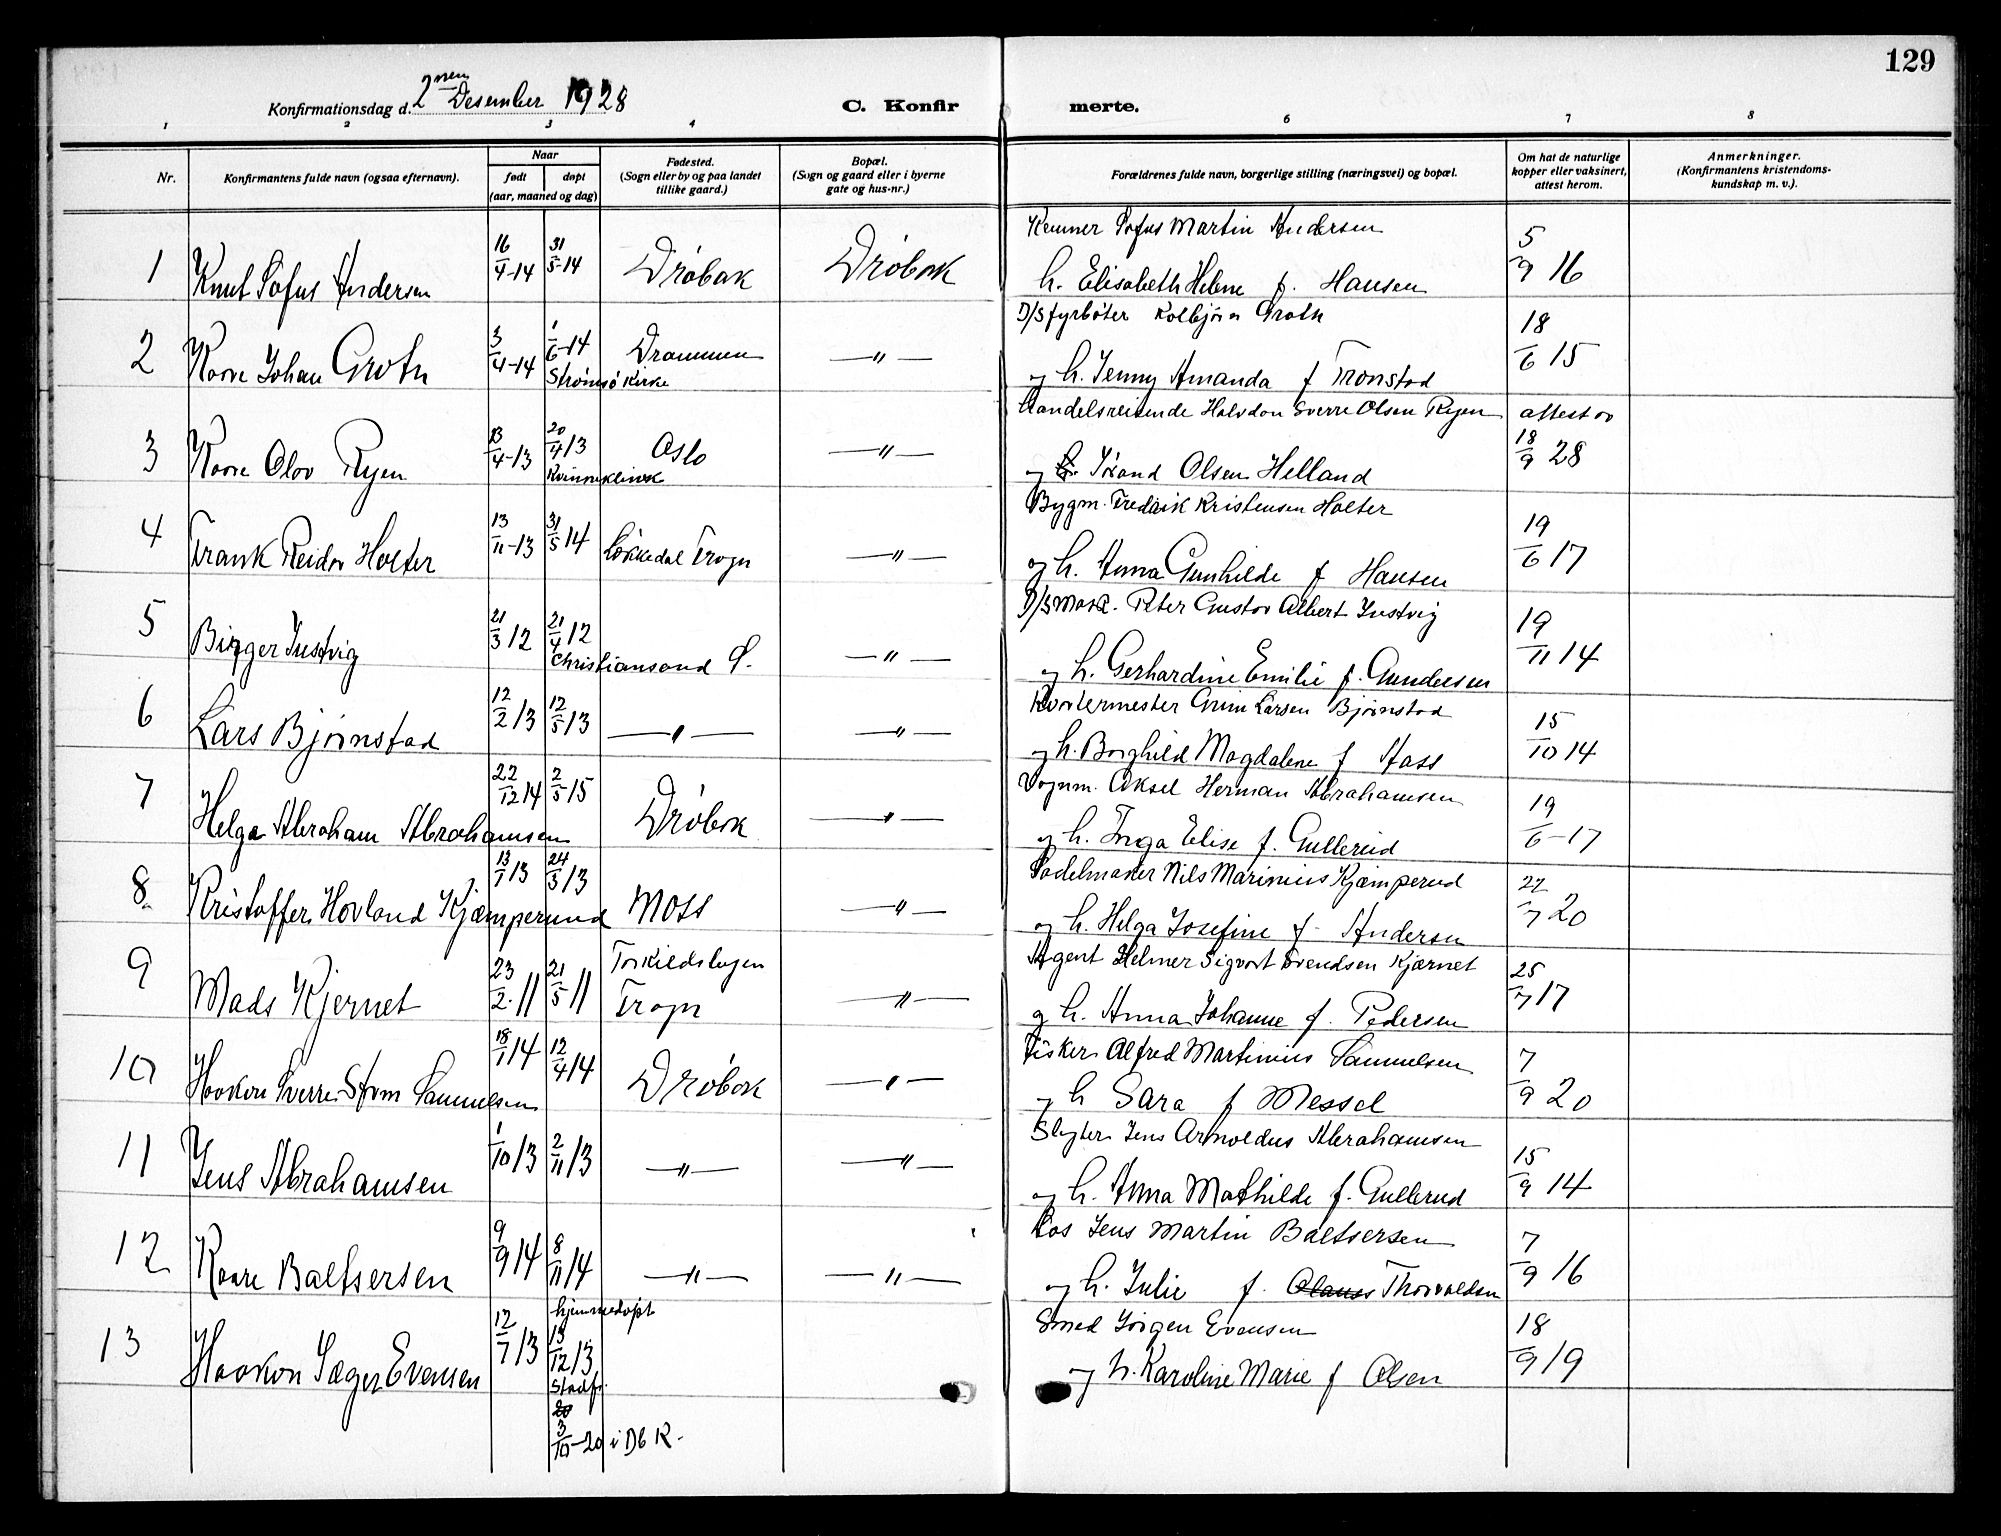 129
Konfirmationsdag d. 2nen Desember 1928
C. Konfir merte.
1 2 3 4 6 7 8
Nr.
Konfirmantens fulde navn (ogsaa efternavn).
Naar
født
døpt
(aar, maaned og dag)
Fødested.
(Sogn eller by og paa landet
tillike gaard.)
Bopæl.
(Sogn og gaard eller i byerne
gate og hus-nr.)
Forældrenes fulde navn, borgerlige stilling (næringsvei) og bopæl.
Om hat de naturlige
kopper eller vaksinert,
attest herom.
Anmerkninger.
(Konfirmantens kristendoms-
kundskap m. v.).
Kemner Sofus Martin Andersen
1 Knut Sofus Andersen 16/4-14 31/5-14 Drøbak Drøbak h. Elisabeth Helene f. Hansen 5/9 16
D/S fyrbøter Kolbjørn Groth
2 Kaare Johan Groth 3/4-14 1/6-14 Drammen —"— og h. Jenny Amanda f Tronstad 18/6 15
Strømsø Kirke
Handelsreisende Halvdan Sverre Olsen Ryen attest av
3 Kaare Olav Ryen 13/4-13 20/4 13 Oslo —"— og h. Olsen Helland 18/9 28
Kvinneklinik
Bygm. Fredrik Kristensen Holter
4 Frank Reidar Holter 13/11-13 31/5 14 Løkkedal Frogn —"— og h. Anna Gunhilde f Hansen 19/6 17
D/S Mask. Peter Gustav Albert Justvig
5 Birger Justvig 21/3 12 21/4 12 —"— 19/11 14
Christiansand S. og h. Gerhardine Emilie f. Gundersen
Kvartermester Grim Larsen Bjørnstad
6 Lars Bjørnstad 12/2 13 12/5 13 —"— —"— og h. Borghild Magdalene f Aass 15/10 14
Vognm. Aksel Herman Abrahamsen
7 Helge Abraham Abrahamsen 22/12 14 2/5 15 Drøbak —"— og h. Inga Elise f. Gullerud 19/6-17
Sadelmaker Nils Marinius Kjæmperud
8 Kristoffer Hovland Kjæmperud 13/1 13 24/3 13 Moss —"— og h. Helga Josefine f. Andersen 22/7 20
Torkildslugen Agent Helmer Sigvart Svendsen Kjærnet
9 Mads Kjernet 23/2-11 21/5 11 Frogn —"— og h. Anna Johanne f. Pedersen 25/7 17
Fisker Alfred Martinius Samuelsen
10 Haakon Sverre Strøm Samuelsen 18/1 14 12/4 14 Drøbak —"— og h Sara f Messel 7/9 20
Slagter Jens Arnoldus Abrahamsen
11 Jens Abrahamsen 1/10 13 2/11 13 —"— —"— og h. Anna Mathilde f. Gullerud 15/9 14
Los Jens Martin Baltsersen
12 Kaare Baltsersen 9/9 14 8/11 14 —"— —"— og h. Julie f. Olauss Thorvaldsen 7/9 16
hjemmedøpt Smed Jørgen Evensen
13 Haakon Sæger Evensen 12/7 13 13/12 13 og h. Karoline Marie f Olsen 18/9 19
Stadf.
20
3/10-20 i Db K.